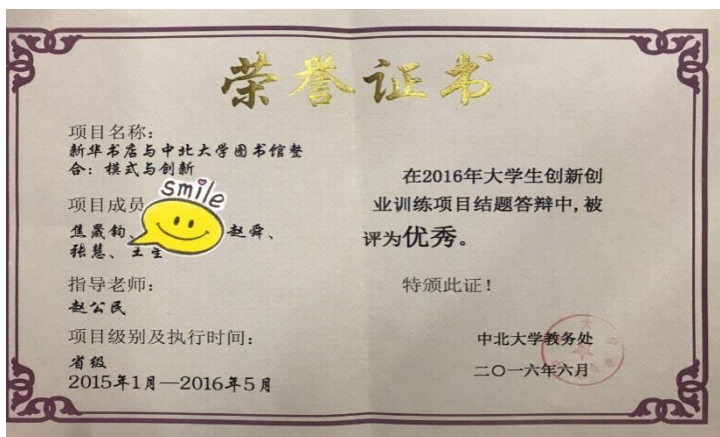 荣誉证书
项目名称：
新华书店与中北大学图书馆整
合：模式与创新
smile
项目成员
焦晟钧、
赵舜、
张慧、王
指导老师：
赵公民
项目级别及执行时间：
省级
2015年1月—2016年5月
在2016年大学生创新创
业训练项目结题答辩中,被
评为优秀。
特颁此证！
中北大学教务处
二〇一六年六月